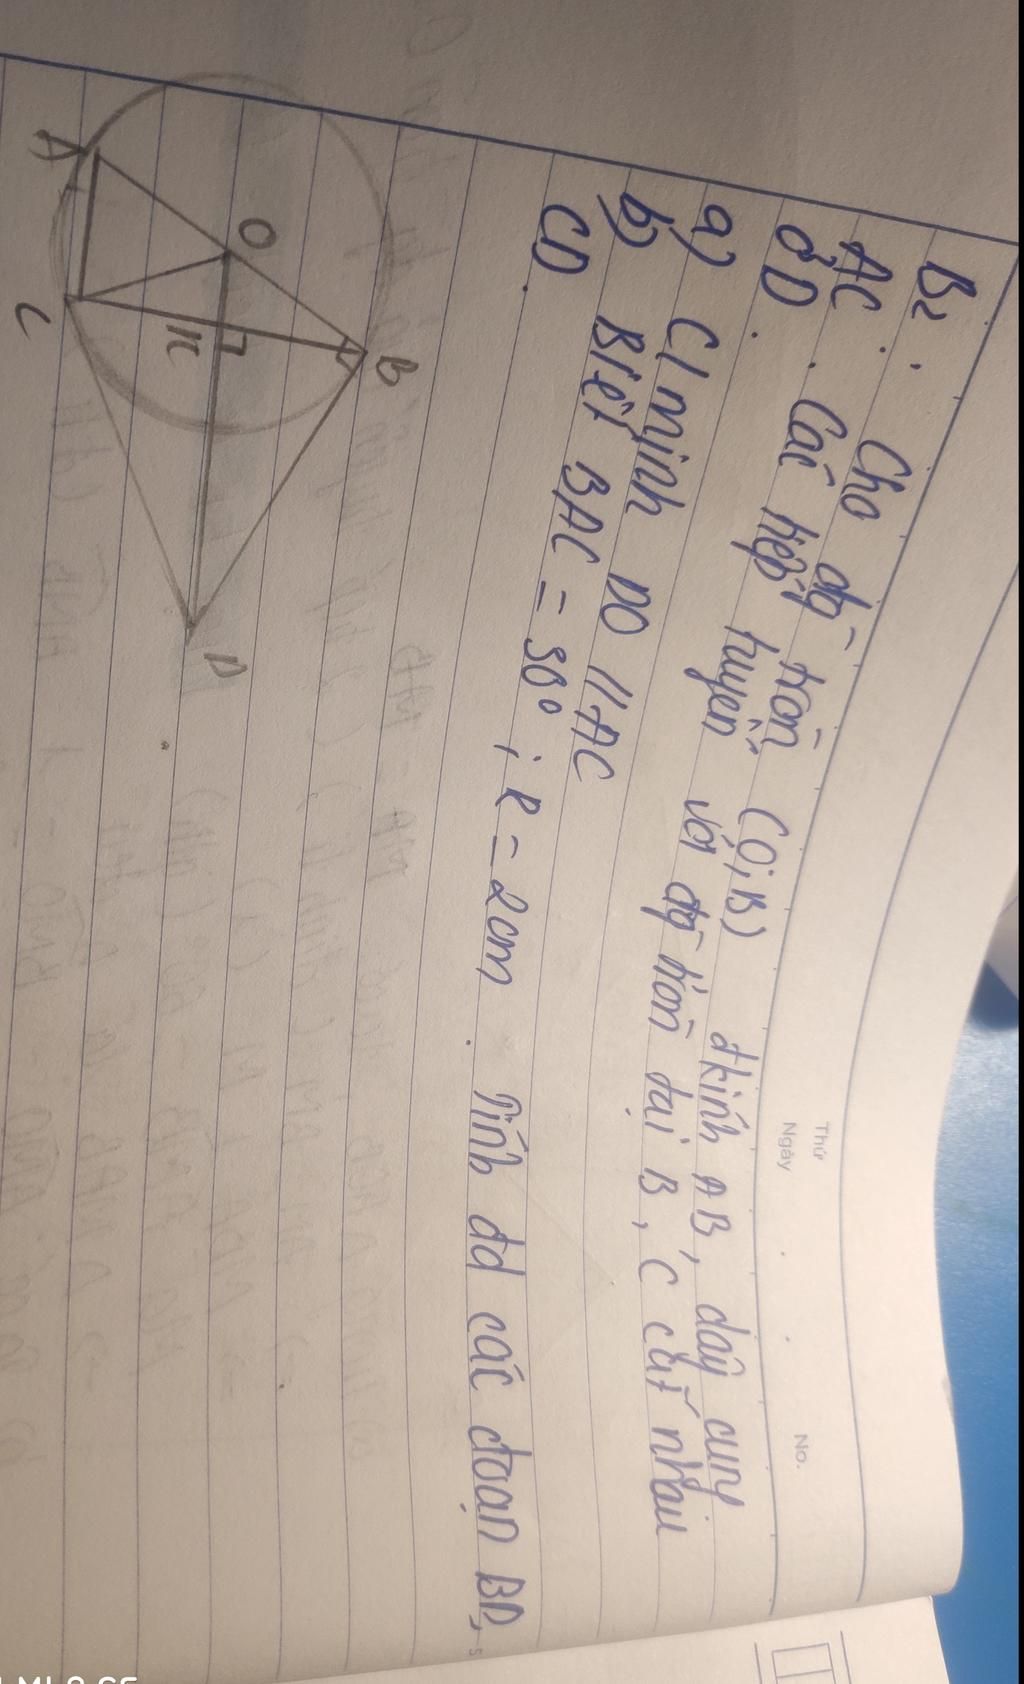 Thứ
Ngày
No.
B2: Cho đg tròn (O; B) đkính AB, dây cung
AC. Các tiếp tuyến với đg tròn tại B, C cắt nhau
ở D.
a) C/minh DO // AC
b) Biết BAC = 30°; R = 2cm. Tính đd các đoạn BD,
CD.
B
O
K
D
A
C